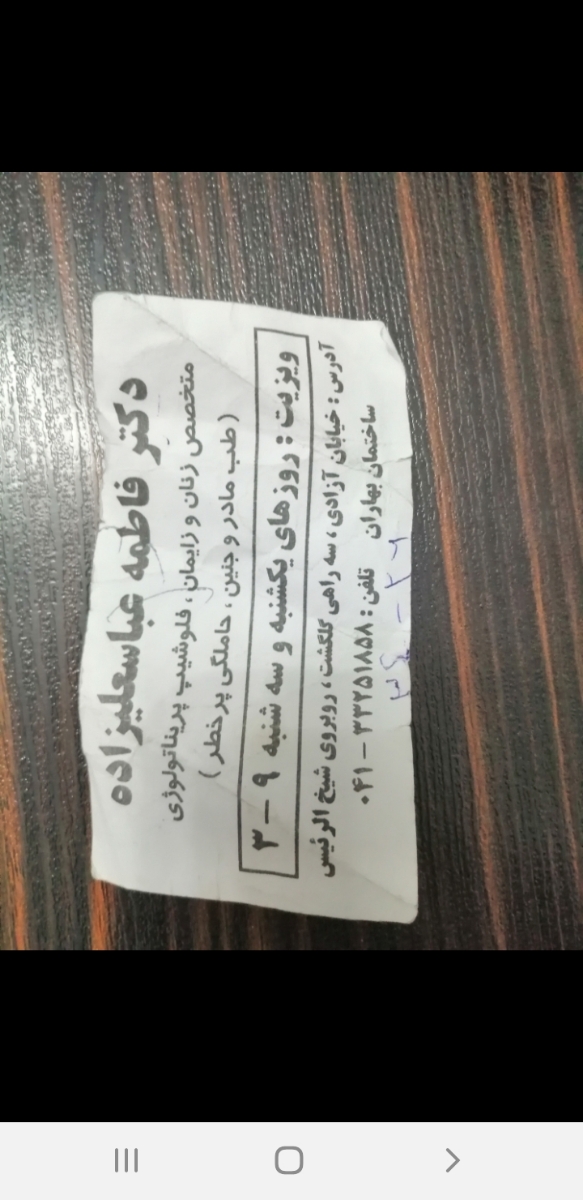 دکتر فاطمه عباسعلیزاده
متخصص زنان و زایمان، فلوشیپ پریناتولوژی
( طب مادر و جنین ، حاملگی پر خطر )
ویزیت : روزهای یکشنبه و سه شنبه ۹ - ۳
آدرس : خیابان آزادی، سه راهی گلگشت، روبروی شیخ الرئیس
ساختمان بهاران تلفن : ۳۳۲۵۱۸۵۸ - ۰۴۱